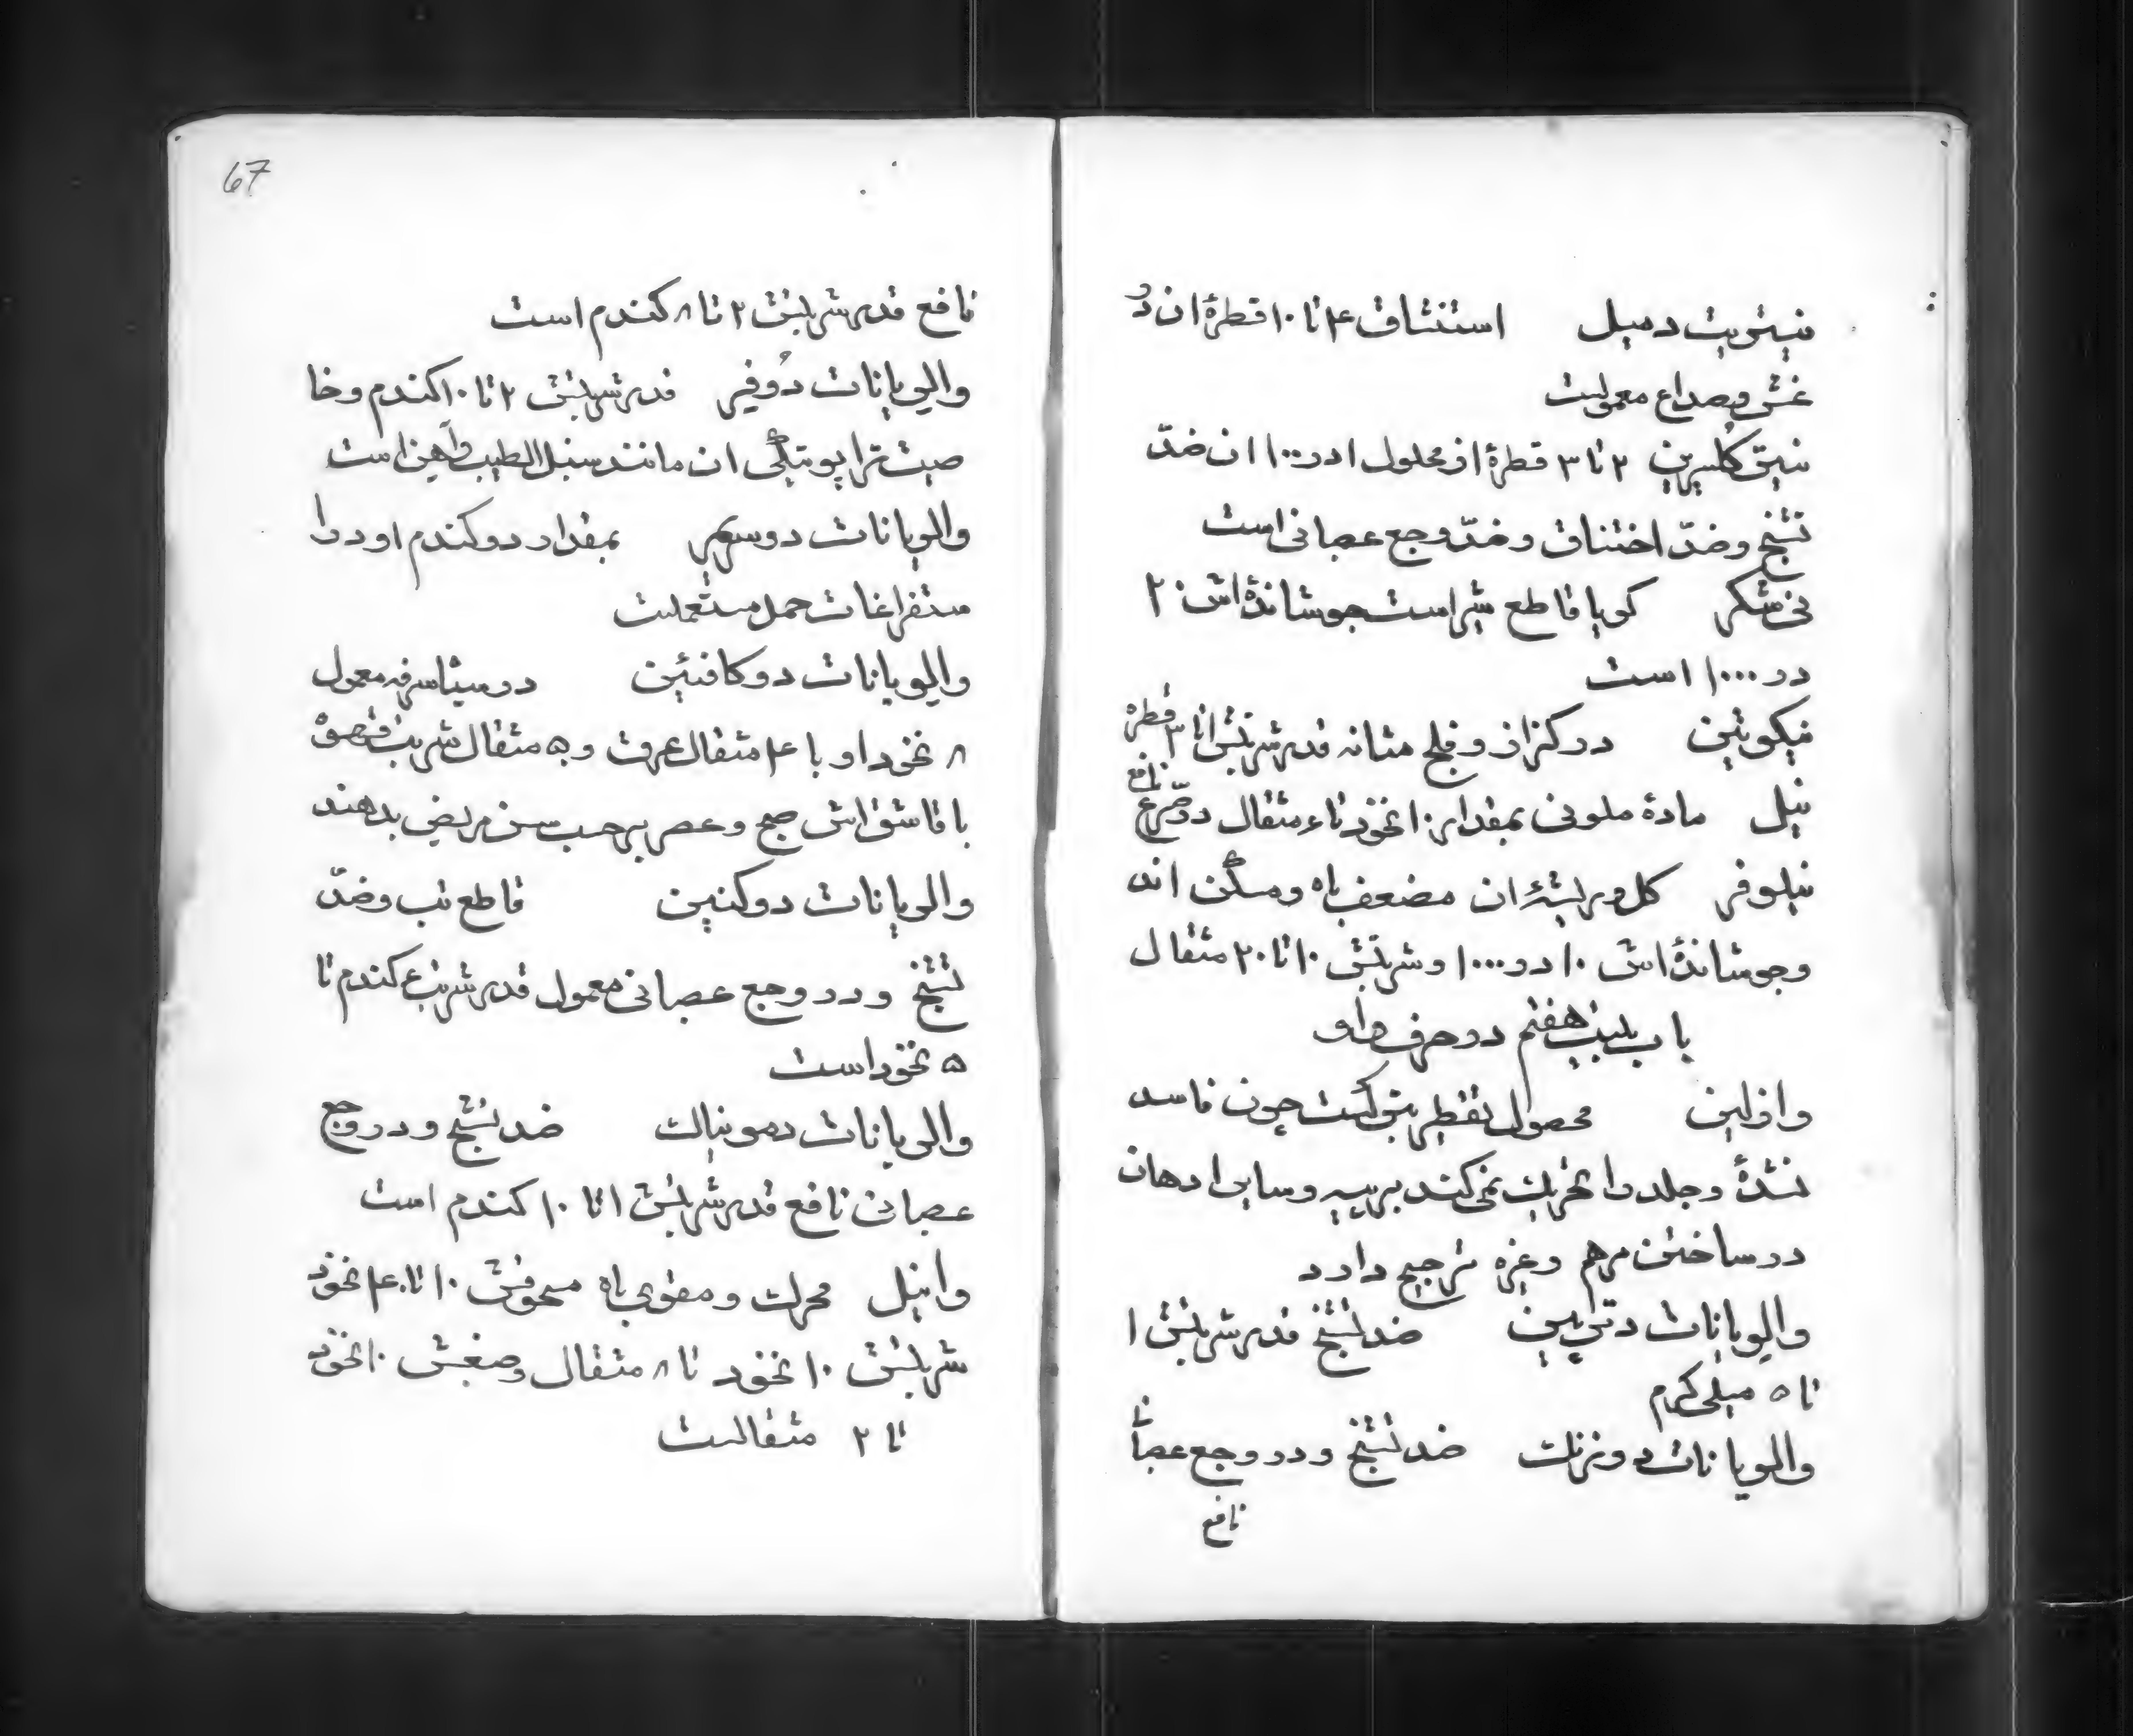 نیتریت دمیل استنشاق ۴ تا ۱۰ قطرهٔ ان در
غش و صداع معمولست
نیترکلسرین ۲ تا ۳ قطرهٔ از محلول ۱ در ۱۰۰ ان ضدّ
تشنج و ضدّ اختناق و ضدّ وجع عصبانی است
نی شکر کویا قاطع شیر است جوشاندهٔ اش ۲۰
در ۱۰۰۰ است
نیکوتین در کزاز و فلج مثانه قدر شربتش ۱ تا ۳ قطره
نیل مادهٔ ملونی بمقدار ۱۰ نخود تا ۴ مثقال در صرع نافع
نیلوفر کل و ریشهٔ ان مضعف باه و مسکّن اند
و جوشاندهٔ اش ۱۰ در ۱۰۰۰ و شربتش ۱۰ تا ۲۰ مثقال
باب بیست هفتم در حرف واو
وازلین محصول تقطیر پترلست چون فاسد
نشدهٔ و جلد را تحریک نمی کند بر پیه و سایر ادهان
در ساختن مرهم و غیره ترجیح دارد
والریانات دتر پین ضد تشنج قدر شربتش ۱
تا ۵ میلی کرم
والریانات دوزنک ضد تشنج و در وجع عصبانی
نافع
67
نافع قدر شربتش ۲ تا ۸ کندم است
والریانات دوفیر قدر شربتش ۲ تا ۱۰ کندم و خا
صیت تراپوتیکی ان مانند سنبل الطیب و آهن است
والریانات دوسریم بمقدار دو کندم او در ا
ستفراغات حمل مستعملست
والریانات دوکافئین در سیاسرفه معمول
۸ نخود او با ۴ مثقال عرق و ۵ مثقال شربت قهوه
با قاشق اش صبح و عصر بر حسب سن مریض بدهند
والریانات دوکنین قاطع تب و ضدّ
تشنج و در وجع عصبانی معمول قدر شربتش ۴ کندم تا
۵ نخود است
والریانات دمونیاک ضد تشنج و در وجع
عصبانی نافع قدر شربتش ۱ تا ۱۰ کندم است
وانیل محرک و مقوی باه مسحوقش ۱۰ تا ۴۰ نخود
شربتش ۱۰ نخود تا ۸ مثقال و صبغش ۱۰ نخود
تا ۲ مثقالست